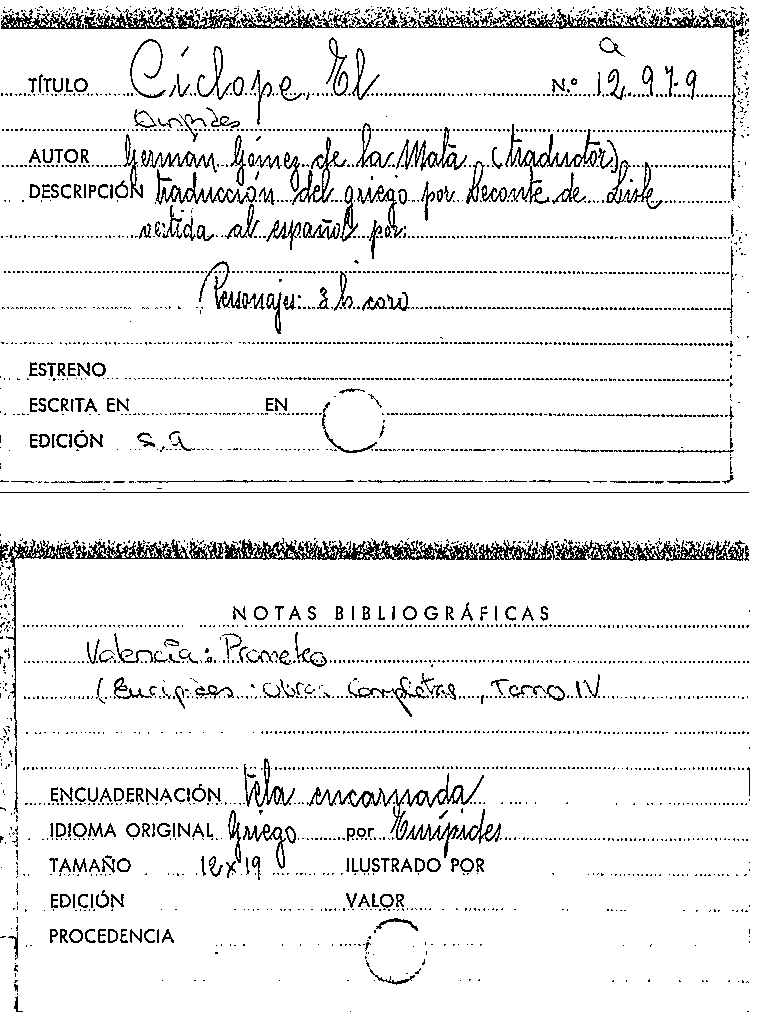 a
TÍTULO Cíclope, El N.º 12.97-9
Eurípides
AUTOR Germán Gómez de la Mata (traductor)
DESCRIPCIÓN traducción del griego por Leconte de Lisle
vertida al español por
Personajes: 3 h. coro
ESTRENO
ESCRITA EN EN
EDICIÓN s.a
NOTAS BIBLIOGRÁFICAS
Valencia: Prometeo
(Eurípides: Obras Completas, Tomo IV
ENCUADERNACIÓN tela encarnada
IDIOMA ORIGINAL Griego por Eurípides
TAMAÑO 12x19 ILUSTRADO POR
EDICIÓN VALOR
PROCEDENCIA